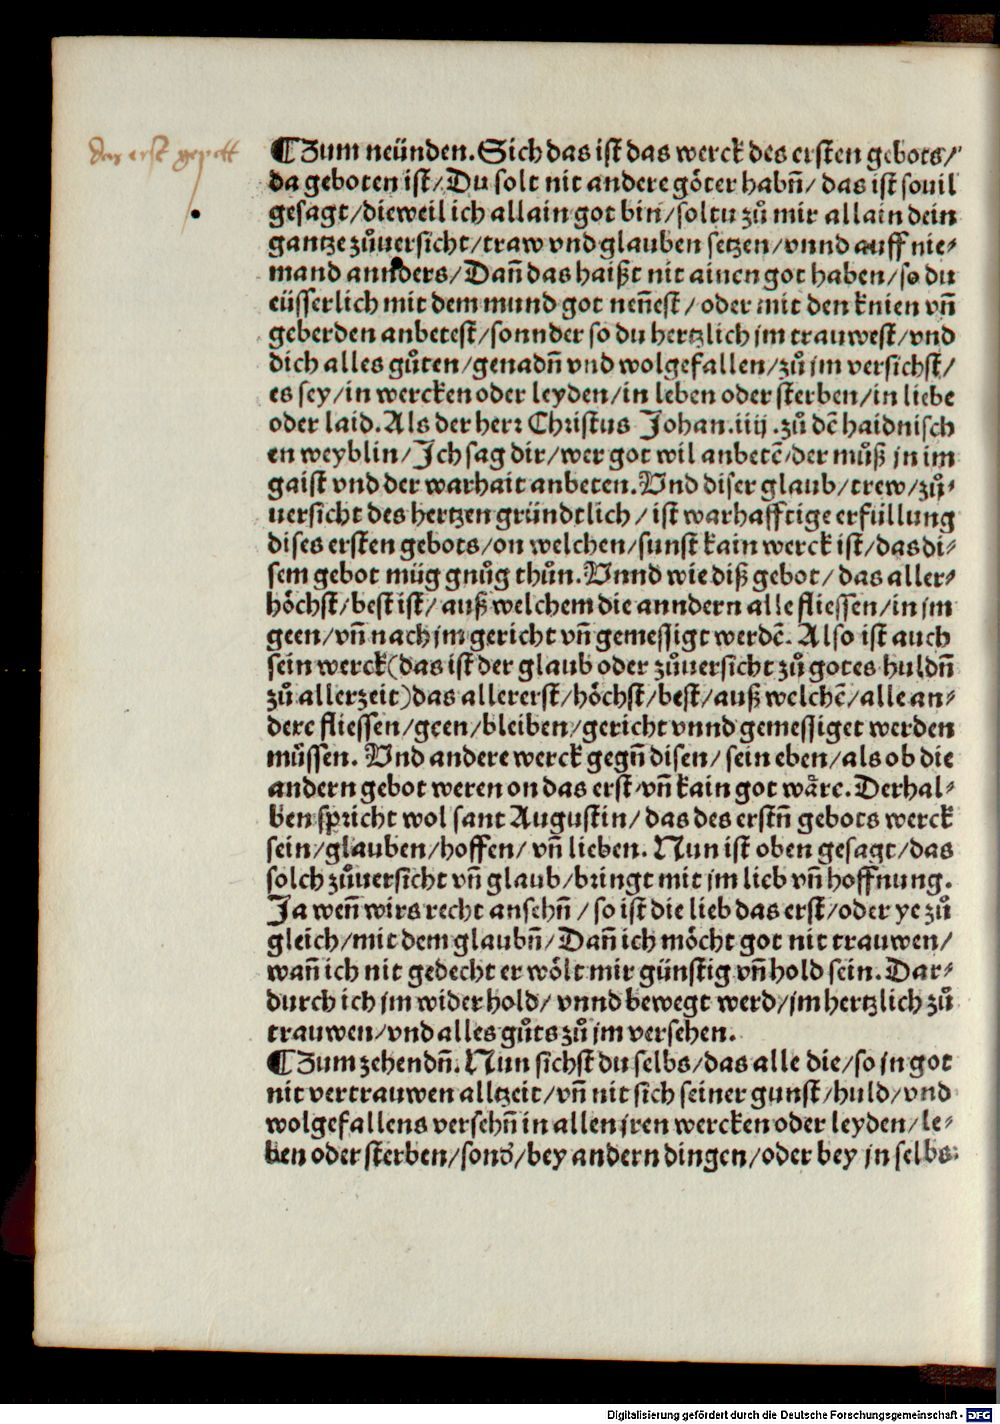 das erst gepott
¶Zum neünden. Sich das ist das werck des ersten gebots/
da geboten ist/ Du solt nit andere goͤter habñ/ das ist souil
gesagt/dieweil ich allain got bin/soltu zuͦ mir allain dein
gantze zuͦuersicht/traw vnd glauben setzen/vnnd auff nie⸗
mand annders/Dañ das haißt nit ainen got haben/so du
eüsserlich mit dem mund got neñest/ oder mit den knien vñ
geberden anbetest/sonnder so du hertzlich jm trauwest/vnd
dich alles guͦten/genadñ vnd wolgefallen/zuͦ jm versichst/
es sey/in wercken oder leyden/in leben oder sterben/in liebe
oder laid. Als der herꝛ Chꝛistus Johan.iiij.zuͦ dẽ haidnisch
en weyblin/Jch sag dir/wer got wil anbetẽ/der muͦß jn im
gaist vnd der warhait anbeten. Vnd diser glaub/trew/zuͦ⸗
uersicht des hertzen gründtlich/ist warhafftige erfüllung
dises ersten gebots/on welchen/sunst kain werck ist/das di⸗
sem gebot müg gnuͦg thuͦn. Vnnd wie diß gebot/ das aller⸗
hoͤchst/best ist/ auß welchem die anndern alle fliessen/in jm
geen/vñ nach jm gericht vñ gemessigt werdẽ. Also ist auch
sein werck(das ist der glaub oder zuͦuersicht zuͦ gotes huldñ
zuͦ allerzeit)das allererst/hoͤchst/best/auß welchẽ/alle an⸗
dere fliessen/geen/bleiben/gericht vnnd gemessiget werden
müssen. Vnd andere werck gegñ disen/ sein eben/als ob die
andern gebot weren on das erst/vñ kain got waͤre. Derhal⸗
ben spꝛicht wol sant Augustin/ das des erstñ gebots werck
sein/glauben/hoffen/ vñ lieben. Nun ist oben gesagt/das
solch zuͦuersicht vñ glaub/bꝛingt mit jm lieb vñ hoffnung.
Ja weñ wirs recht ansehñ/so ist die lieb das erst/oder ye zuͦ
gleich/mit dem glaubñ/Dañ ich moͤcht got nit trauwen/
wañ ich nit gedecht er woͤlt mir günstig vñ hold sein. Dar⸗
durch ich jm wider hold/ vnnd bewegt werd/jm hertzlich zuͦ
trauwen/vnd alles guͦts zuͦ jm versehen.
¶Zum zehendñ. Nun sichst du selbs/das alle die/so jn got
nit vertrauwen alltzeit/vñ nit sich seiner gunst/huld/vnd
wolgefallens versehñ in allen jren wercken oder leyden/le⸗
ben oder sterben/sond̕/bey andern dingen/oder bey jn selbs
Digitalisierung gefördert durch die Deutsche Forschungsgemeinschaft - DFG